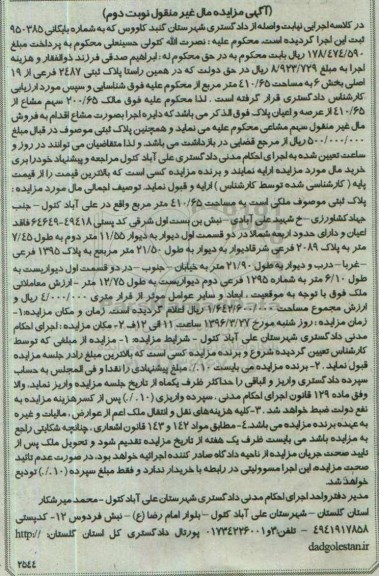 (آگهی مزایده مال غیر منقول نوبت دوم)
در کلاسه اجرایی نیابت واصله از دادگستری شهرستان گنبد کاووس که به شماره بایگانی ۹۵۰۳۸۵
ثبت این اجرا گردیده است، محکوم علیه : نصرت الله کتولی حسینعلی محکوم به پرداخت مبلغ
۱۷۸/۴۷۴/۵۹۰ ریال بابت محکوم به در حق محکوم له : ابراهیم صدقی فرزند ذوالفقار و هزینه
اجرا به مبلغ ۸/۹۳۳/۷۲۹ ریال در حق دولت که در همین راستا پلاک ثبتی ۲۴۸۷ فرعی از ۱۹
اصلی بخش ۶ به مساحت ۴۱۰/۶۵ متر مربع از محکوم علیه فوق شناسایی و سپس مورد ارزیابی
کارشناس دادگستری قرار گرفته است . لذا محکوم علیه فوق مالک ۲۰۰/۶۵ سهم مشاع از
۴۱۰/۶۵ از عرصه و اعیان پلاک فوق الذکر می باشد که دایره اجرا بصورت مشاع اقدام به فروش
مال غیر منقول سهم مشاعی محکوم علیه می نماید و همچنین پلاک ثبتی موصوف در قبال مبلغ
۵۰۰/۰۰۰/۰۰۰ ریال از مرجع قضایی در بازداشت می باشد. و لذا متقاضیان می توانند در روز و
ساعت تعیین شده به اجرای احکام مدنی دادگستری علی آباد کتول مراجعه و پیشنهاد خود را بری
خرید مال مورد مزایده ارایه نمایند و برنده مزایده کسی است که بالاترین قیمت را از قیمت
پایه ( کارشناسی شده توسط کارشناس ) ارایه و قبول نماید. توصیف اجمالی مال مورد مزایده :
پلاک ثبتی موصوف ملکی است به مساحت ۴۱۰/۶۵ متر مربع واقع در علی آباد کتول – جنب
جهاد کشاورزی – خ شهید علی آبادی – نبش بن بست اول شرقی کد پستی ۴۹۴۱۸-۶۴۶۴۹ فاقد
اعیان و دارای حدود اربعه شمالا در دو قسمت اول دیوار به دیوار ۱۱/۵۵ متر دوم به طول ۷/۴۵
متر به پلاک ۲۰۸۹ فرعی شرقا دیوار به دیوار به طول ۲۱/۵۰ متر مربع به پلاک ۱۳۹۵ فرعی
– غربا – درب و دیوار به طول ۲۱/۹۰ متر به خیابان – جنوب – در دو قسمت اول دیواریست به
طول ۶/۱۰ متر به شماره ۱۲۹۵ فرعی دوم دیواریست به طول ۱۲/۷۵ متر - ارزش معاملاتی
ملک فوق با توجه به موقعیت ، ابعاد و سایر عوامل موثر از قرار متری ۴/۰۰۰/۰۰۰ ریال و
ارزش مجموع مساحت ۱/۶۴۲/۶۰۰/۰۰۰ ریال اعلام گردیده است. زمان و مکان مزایده: ۱-
زمان مزایده : روز شنبه مورخ ۱۳۹۶/۳/۲۷ ساعت ۱۱ الی ۱۲ ف ۲- مکان مزایده : اجرای احکام
مدنی دادگستری شهرستان علی آباد کتول - شرایط مزایده: ۱- مزایده از مبلغی که توسط
کارشناس تعیین گردیده شروع و برنده مزایده کسی است که بالاترین مبلغ را در جلسه مزایده
قبول نماید . ۲- برنده مزایده می بایست ۱۰٪ مبلغ پیشنهادی را نقدا و فی المجلس به حساب
سپرده دادگستری واریز و الباقی را حداکثر ظرف یکماه از تاریخ جلسه مزایده واریز نماید. والا
وفق ماده ۱۲۹ قانون اجرای احکام مدنی ، سپرده واریزی (۱۰٪) پس از کسر هزینه مزایده به
نفع دولت ضبط خواهد شد. ۳- کلیه هزینه های نقل و انتقال ملک اعم از عوارض ، مالیات و غیره
به عهده برنده مزایده می باشد. ۴- مطابق مواد ۱۴۲ و ۱۴۳ قانون اشعاری ، چنانچه شکایتی راجع
به مزایده باشد می بایست ظرف یک هفته از تاریخ مزایده تقدیم شود و تحویل ملک پس از
تایید صحت جریان مزایده از ناحیه دادگاه صادر کننده اجرائیه خواهد بود. در صورت عدم تائید
صحت مزایده این اجرا مسوولیتی در رابطه با خریدار ندارد و فقط مبلغ سپرده (۱۰٪) تودیع
خواهد شد.
مدیر دفتر واحد اجرای احکام مدنی دادگستری شهرستان علی آباد کتول - محمد میرشکار
استان گلستان – شهرستان علی آباد کتول – بلوار امام رضا (ع) – نبش فردوس ۱۲- کدپستی
۴۹۴۱۹۱۷۸۵۸ – تلفن ۳و۰۱۷۳۴۲۲۶۰۰۱ پورتال دادگستری کل استان گلستان: http://
dadgolestan.ir
۲۵۴۴